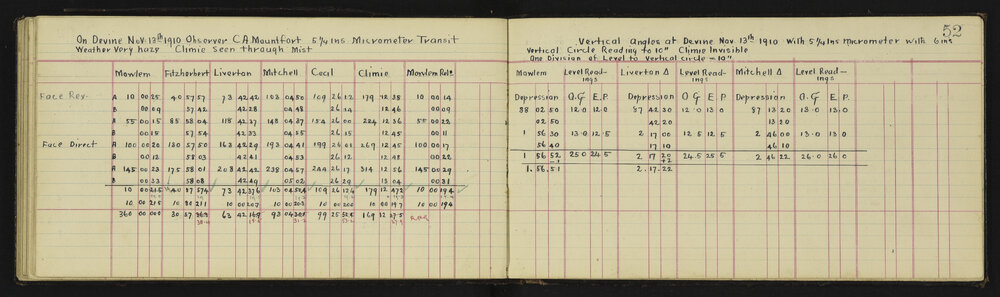 On Devine Nov. 13th 1910 Observer C A Mountfort 5 1/4 Ins Micrometer Transit
Weather Very hazy Climie Seen through Mist
Mowlem Fitzherbert Liverton Mitchell Cecil Climie Mowlem Rdo
Face Rev. A 10 00 25 40 57 57 73 42 42 103 04 50 109 26 12 179 12 38 10 00 14
B 00 09 57 42 42 28 04 48 26 14 12 46 00 09
A 55 00 15 85 58 04 118 42 37 148 04 37 154 26 00 224 12 36 55 00 22
B 00 15 57 54 42 33 04 55 26 15 12 45 00 11
Face Direct A 100 00 20 130 57 50 163 42 29 193 04 41 199 26 01 269 12 45 100 00 17
B 00 12 58 03 42 41 04 53 26 12 12 48 00 22
A 145 00 23 175 58 01 208 42 42 238 04 57 244 26 17 314 12 56 145 00 29
B 00 33 58 08 42 49 05 02 26 29 13 04 00 31
10 00 21.5 40 57 57.4 73 42 37.6 103 04 109 26 179 12 47.2 10 00 19.4
10 00 21.5 10 00 21.1 10 00 20.7 10 00 20.3 10 00 20.0 10 00 19.7 10 00 19.4
360 00 00.0 30 57 36.3 63 42 16.9 93 04 99 25 169 12 27.5
52
Vertical Angles at Devine Nov 13th 1910 With 5 1/4 Ins Micrometer with 6 ins
Vertical Circle Reading to 10" Climie Invisible
One Division of Level to Vertical Circle = 10"
Mowlem Level Readings Liverton Δ Level Readings Mitchell Δ Level Readings
Depression O.G E.P. Depression O G E P. Depression O. G E. P.
88 02 50 12.0 12.0 87 42 30 12.0 13.0 87 13 20 13.0 13.0
02 50 42 20 13 20
1 56 30 13.0 12.5 2 17 00 12.5 12.5 2 46 00 13.0 13.0
56 40 17 10 46 10
1 56 52 25.0 24.5 2 17 20 24.5 25.5 2 46 22 26.0 26.0
-1 +2
1. 56. 51 2. 17. 22